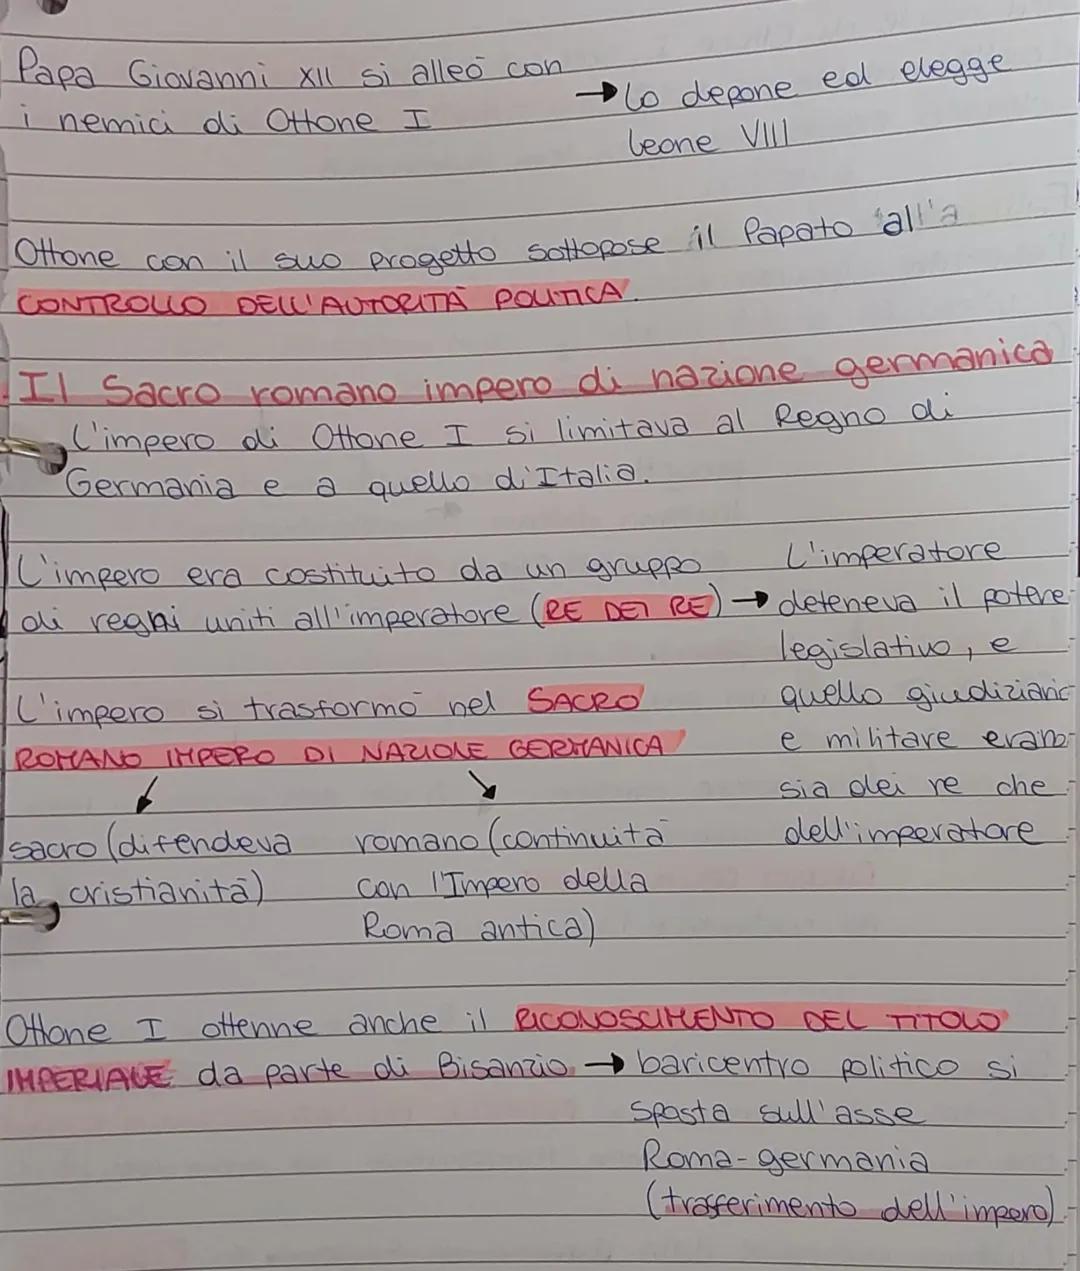 Papa Giovanni XII si alleò con
i nemici di Ottone I
→ lo depone ed elegge
leone VIII
Ottone con il suo progetto sottopose il Papato all'a
CONTROLLO DELL'AUTORITÀ POLITICA.
Il Sacro romano impero di nazione germanica
L'impero di Ottone I si limitava al Regno di
Germania e a quello d'Italia.
L'impero era costituito da un gruppo
di regni uniti all'imperatore (RE DEI RE) →
L'imperatore
deteneva il potere
legislativo, e
quello giudiziario
e militare erano
sia dei re che
dell'imperatore
L'impero si trasformò nel SACRO
ROMANO IMPERO DI NAZIONE GERMANICA
sacro (difendeva
la cristianità)
romano (continuità
con l'Impero della
Roma antica)
Ottone I ottenne anche il RICONOSCIMENTO DEL TITOLO
IMPERIALE da parte di Bisanzio → baricentro politico si
sposta sull'asse
Roma-germania
(trasferimento dell'impero)